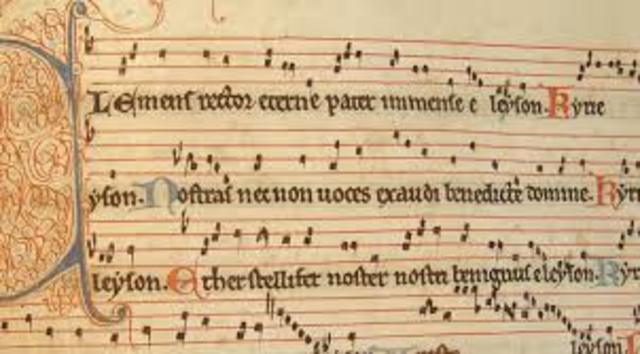 LEmens rector eterne pater immense e leyson. Kyrie
yson. Nostras necnon uoces exaudi benedicte domine. Kyri
leyson. Ether stellifer noster nostri benignus eleyson. Kyr
leyson